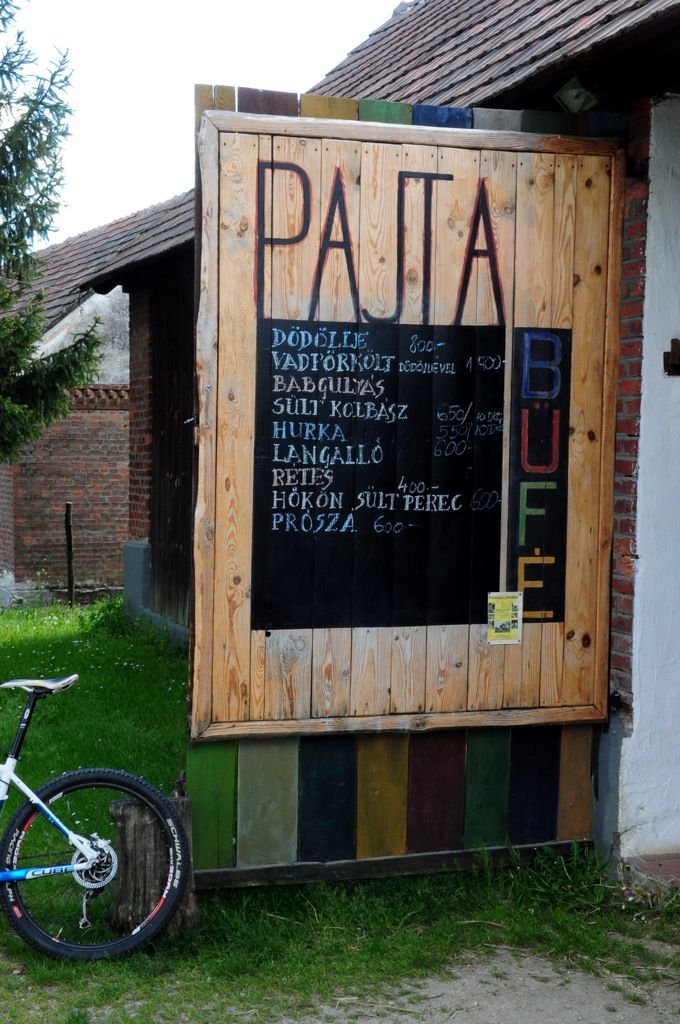 PAJTA
BÜFÉ
DÖDÖLLE 800.-
VADPÖRKÖLT DÖDÖLLÉVEL 1500.-
BABGULYÁS
SÜLT KOLBÁSZ 650/10 DKG
HURKA 550/10 DKG
LANGALLÓ 600.-
RÉTES 400.-
HÓKON SÜLT PEREC 600.-
PRÓSZA 600.-
CUBE
SCHWALBE